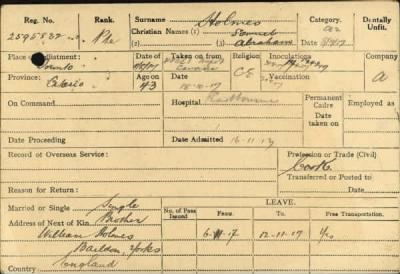 Reg. No. Rank. Surname Holmes Category. Dentally Unfit.
2595532 Pte Christian Names (1) Samuel
(2) Abraham
Place of Attestment: Date of Taken on from Religion Inoculations Company
Toronto Canada C/E A
Province: Age on Date Vaccination
Ontario 43 18-10-17
On Command Hospital Permanent Cadre Date taken on Employed as
Date Proceeding Date Admitted 16-11-17
Record of Overseas Service: Profession or Trade (Civil)
Cook
Transferred or Posted to
Reason for Return:
Married or Single Single LEAVE.
Address of Next of Kin Brother No. of Pass Issued From. To. Free Transportation.
William Holmes 6-11-17 12-11-17 Yes
Baildon, Yorks
Country England